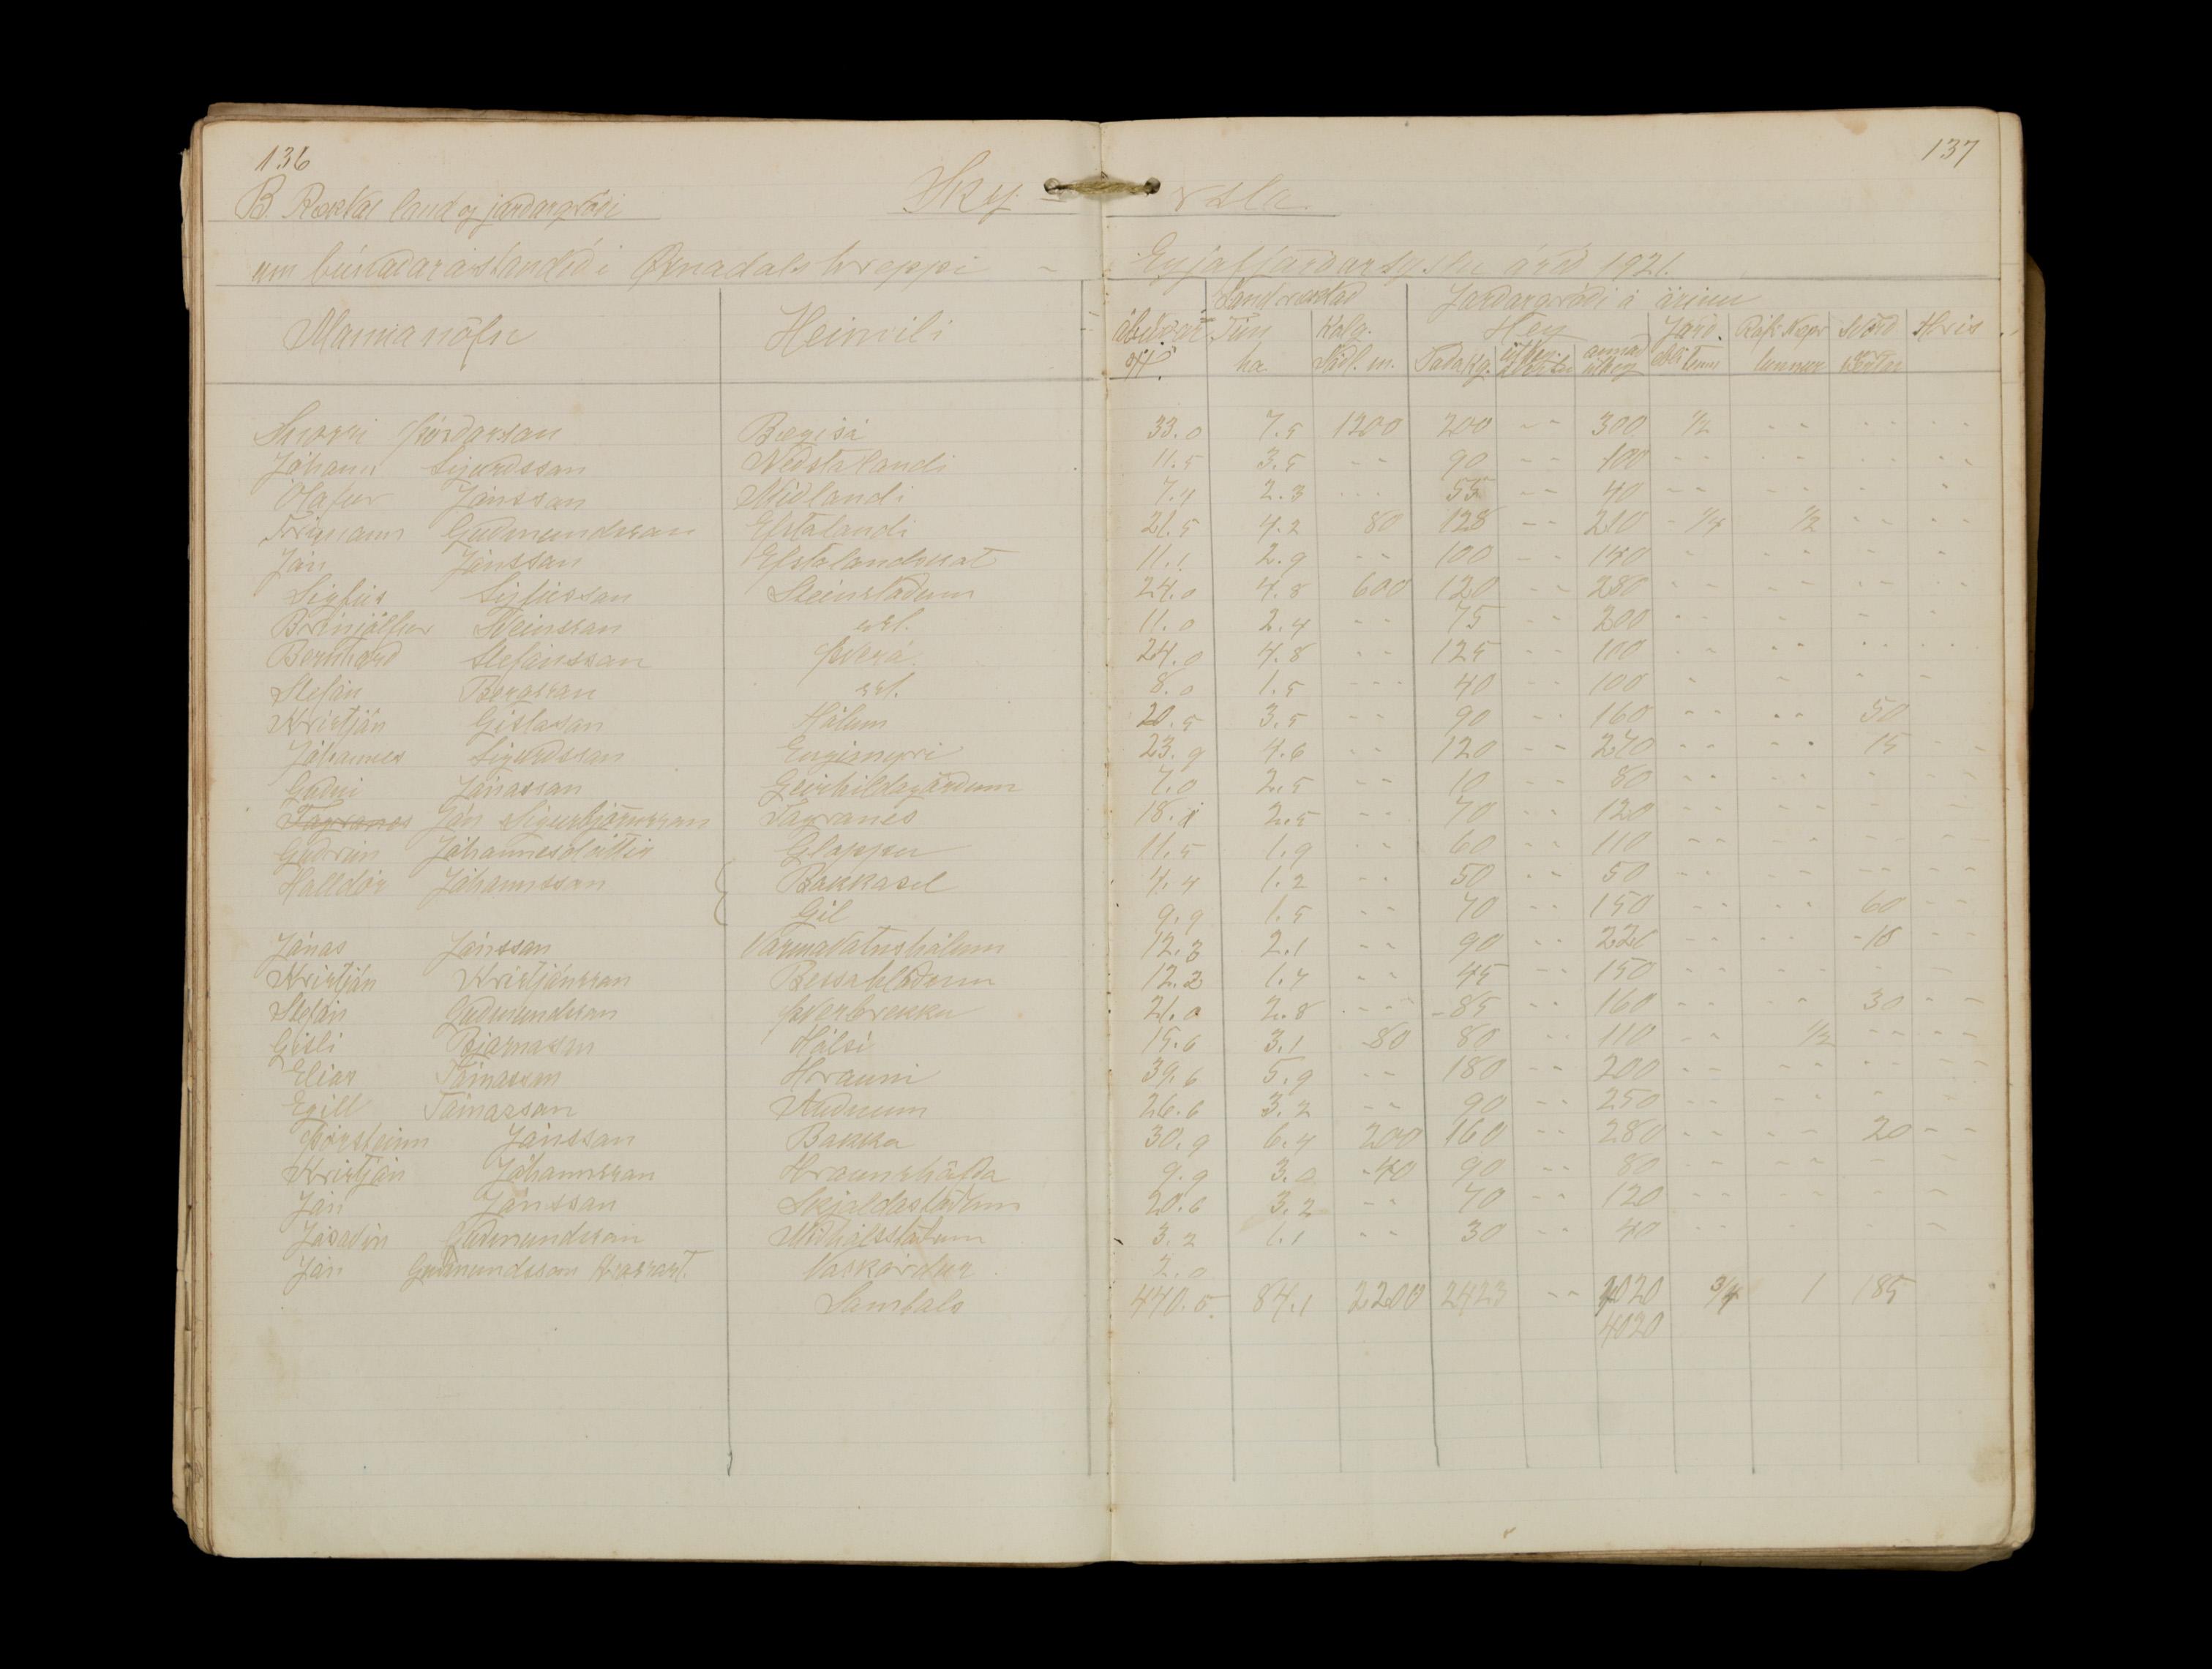 136
137
B. Ræktað land og jarðargróði
Ský = rsla
um búnaðarástandið í Öxnadalshreppi - Eyjafjarðarsýslu árið 1921.
Mannanöfn Heimili Land ræktað Jarðargróði á árinu
Tún Kálg. Hey Jarð. Hrís
ha. Taða kg. tunnur
Snorri Þórðarson Bægisá 33.0 7.5 1200 200 -- 300 1/2 -- -- --
Jóhann Sigurðsson Neðstalandi 11.5 3.5 -- 90 -- 100 -- -- -- --
Ólafur Jónsson Miðlandi 7.4 2.3 -- 55 -- 40 -- -- - -
Frímann Guðmundsson Efstalandi 21.5 4.2 80 128 -- 210 - 1/4 1/2 -- --
Jón Jónsson Efstalandskot 11.1 2.9 -- 100 -- 140 - -- - -
Sigfús Sigfússon Steinstöðum 24.0 4.8 600 120 -- 280 -- -- -- --
Brínjólfur Sveinsson ssl. 11.0 2.4 -- 75 -- 200 -- - - -
Bernharð Stefánsson Þverá 24.0 4.8 -- 125 -- 100 -- -- -- --
Stefán Bergsson ssl. 8.0 1.5 --- 40 -- 100 - - - -
Kristján Gíslason Hólum 20.5 3.5 -- 90 -- 160 -- -- 50
Jóhannes Sigurðsson Engimýri 23.9 4.6 -- 120 -- 270 -- -- 15 --
Guðni Jónasson Geirhildagörðum 7.0 2.5 -- 10 -- 80 -- -- - --
Fagranes Jón Sigurbjörnsson Fagranes 18.1 2.5 -- 70 -- 120 -- -- - --
Guðrún Jóhannesdóttir Gloppu 11.5 1.9 -- 60 -- 110 -- -- - --
Halldór Jóhannsson { Bakkasel 4.4 1.2 -- 50 -- 50 -- -- -- --
Gil 9.9 1.5 -- 70 -- 150 -- -- 60 --
Jónas Jónsson Varmavatnshólum 12.3 2.1 -- 90 -- 220 -- -- -10 --
Kristján Kristjánsson Bessahlöðum 12.2 1.4 -- 45 -- 150 -- -- - --
Stefán Guðmundsson Þverbrekku 21.0 2.8 --- -85 -- 160 -- -- 30 --
Gísli Bjarnason Hálsi 15.6 3.1 -80 80 -- 110 -- 1/2 -- --
Elías Tómasson Hrauni 39.6 5.9 -- 180 -- 200 -- -- -- --
Egill Tómasson Auðnum 26.6 3.2 -- 90 -- 250 -- -- - -
Þorsteinn Jónsson Bakka 30.9 6.4 200 160 -- 280 -- -- 20 --
Kristján Jóhannsson Hraunshöfða 9.9 3.0 -40 90 -- 80 -- -- - -
Jón Jónsson Skjaldastöðum 20.6 3.2 -- 70 -- 120 -- -- - -
Jósavin Guðmundsson Miðhálsstöðum 3.2 1.1 -- 30 -- 40 -- - - -
Jón Guðmundsson Vaskárdur 2.0
Samtals 440.5 84.1 2200 2423 -- 4020 3/4 1 185
4020